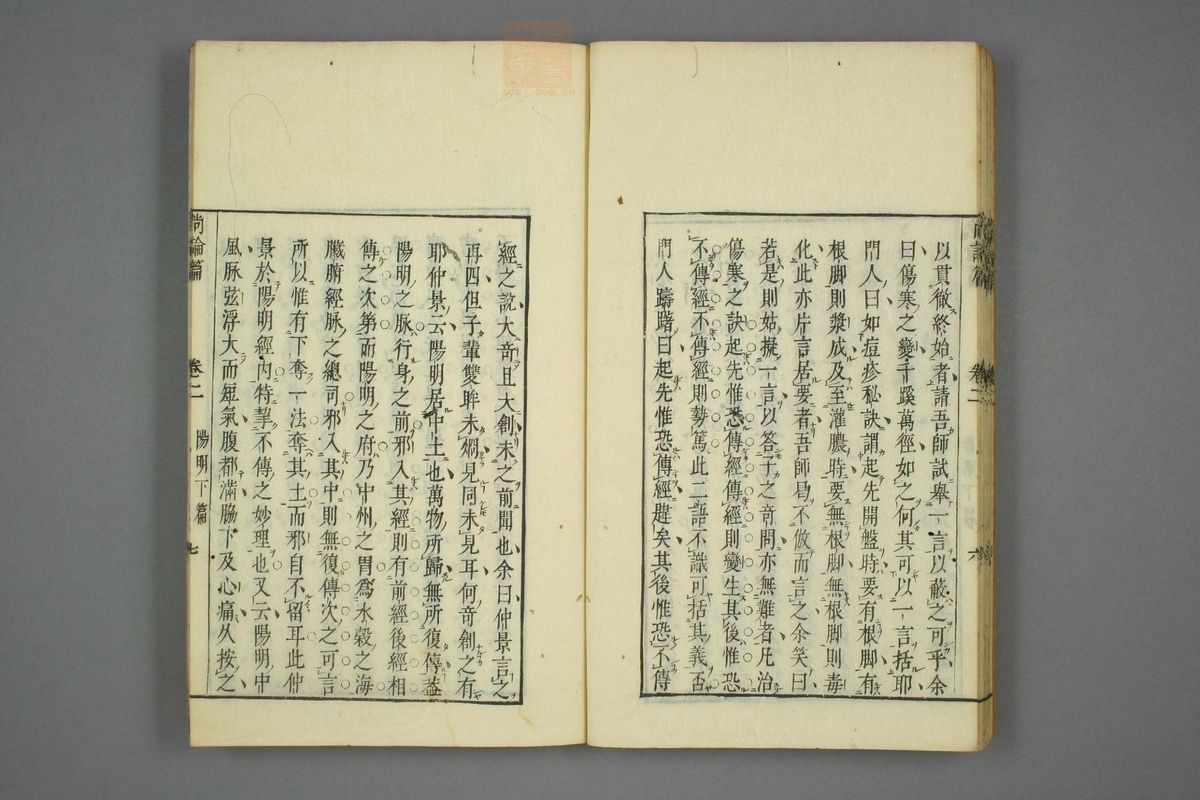 以貫徹終始者請吾師試舉一言以蔽之可乎余
曰傷寒之變千蹊萬徑如之何其可以一言括耶
門人曰如痘疹秘訣謂起先開盤時要有根脚有
根脚則漿成及至灌膿時要無根脚無根脚則毒
化此亦片言居要者吾師曷不倣而言之余笑曰
若是則姑擬一言以答子之奇問亦無難者凡治
傷寒之訣起先惟恐傳經傳經則變生其後惟恐
不傳經不傳經則勢篤此二語不識可括其義否
門人躊躇曰起先惟恐傳經韙矣其後惟恐不傳
尚論篇 卷二 六
經之說大奇且大創未之前聞也余曰仲景言之
再四但子輩雙眸未烱見同未見耳何奇創之有
耶仲景云陽明居中土也萬物所歸無所復傳蓋
陽明之脉行身之前邪入其經則有前經後經相
傳之次第而陽明之府乃中州之胃為水穀之海
臟腑經脉之總司邪入其中則無復傳次之可言
所以惟有下奪一法奪其土而邪自不留耳此仲
景於陽明經內特挈不傳之妙理也又云陽明中
風脉弦浮大而短氣腹都滿脇下及心痛久按之
尚論篇 卷二 陽明下篇 七